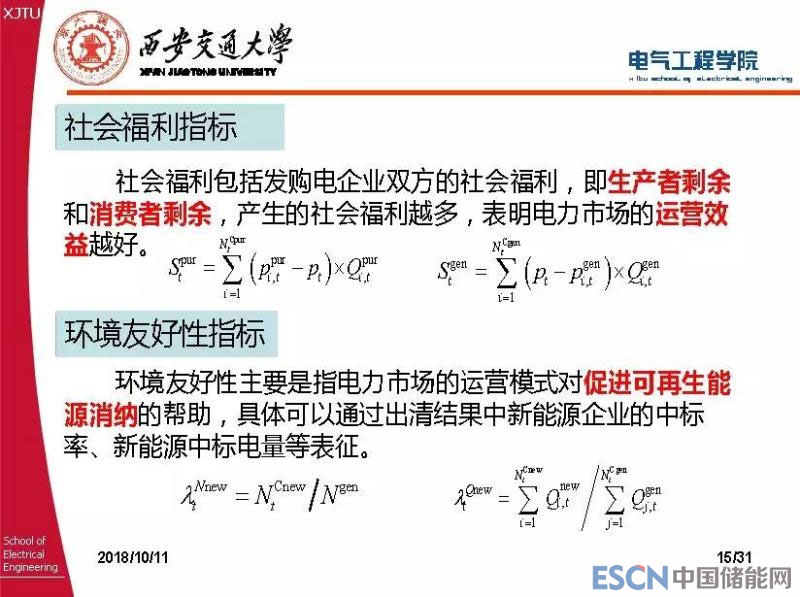 XJTU
西安交通大学
XI'AN JIAOTONG UNIVERSITY
电气工程学院
Xjtu school of electrical engineering
社会福利指标
社会福利包括发购电企业双方的社会福利，即生产者剩余
和消费者剩余，产生的社会福利越多，表明电力市场的运营效
益越好。
S_t^{pur} = \sum_{i=1}^{N_t^{Cpur}} (p_{i,t}^{pur} - p_t) × Q_{i,t}^{pur}
S_t^{gen} = \sum_{i=1}^{N_t^{Cgen}} (p_t - p_{i,t}^{gen}) × Q_{i,t}^{gen}
环境友好性指标
环境友好性主要是指电力市场的运营模式对促进可再生能
源消纳的帮助，具体可以通过出清结果中新能源企业的中标
率、新能源中标电量等表征。
λ_t^{Nnew} = N_t^{Cnew} / N^{gen}
λ_t^{Qnew} = \sum_{i=1}^{N_t^{Cnew}} Q_{i,t}^{new} / \sum_{j=1}^{N_t^{Cgen}} Q_{j,t}^{gen}
School of
Electrical
Engineering
2018/10/11
15/31
ESCN中国储能网